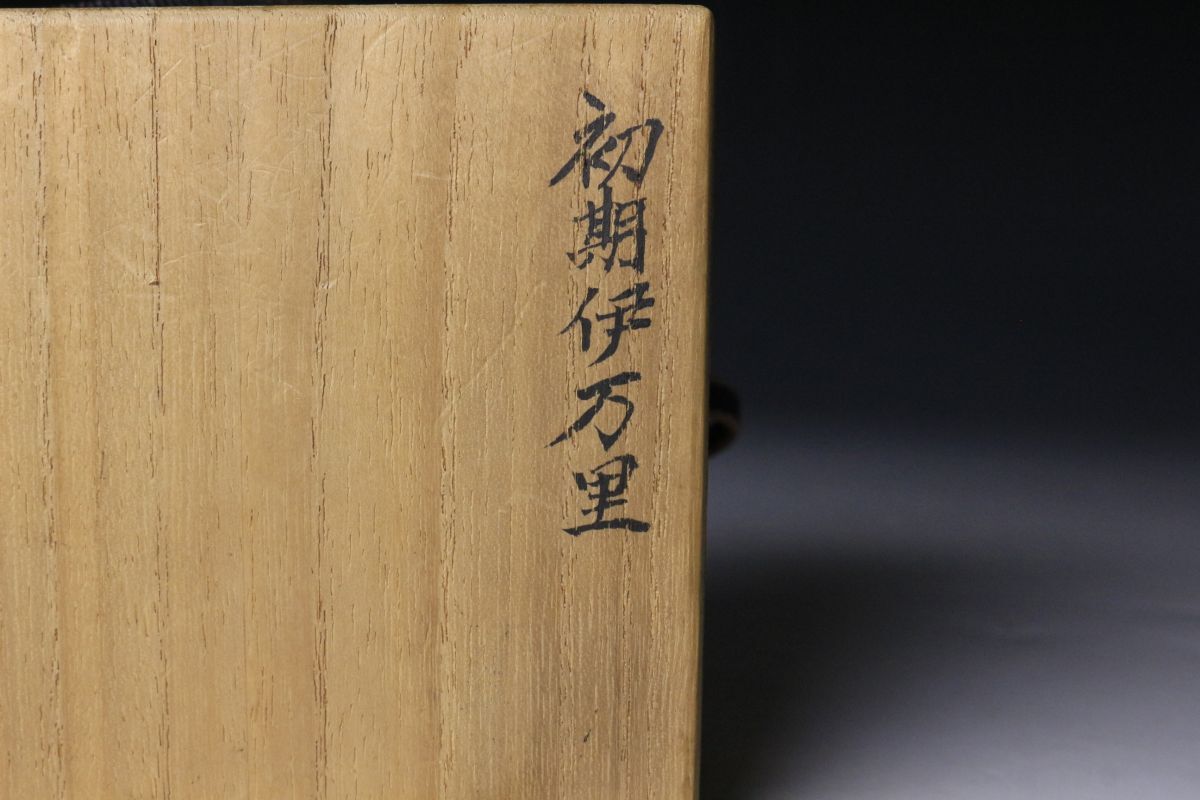 初期伊万里